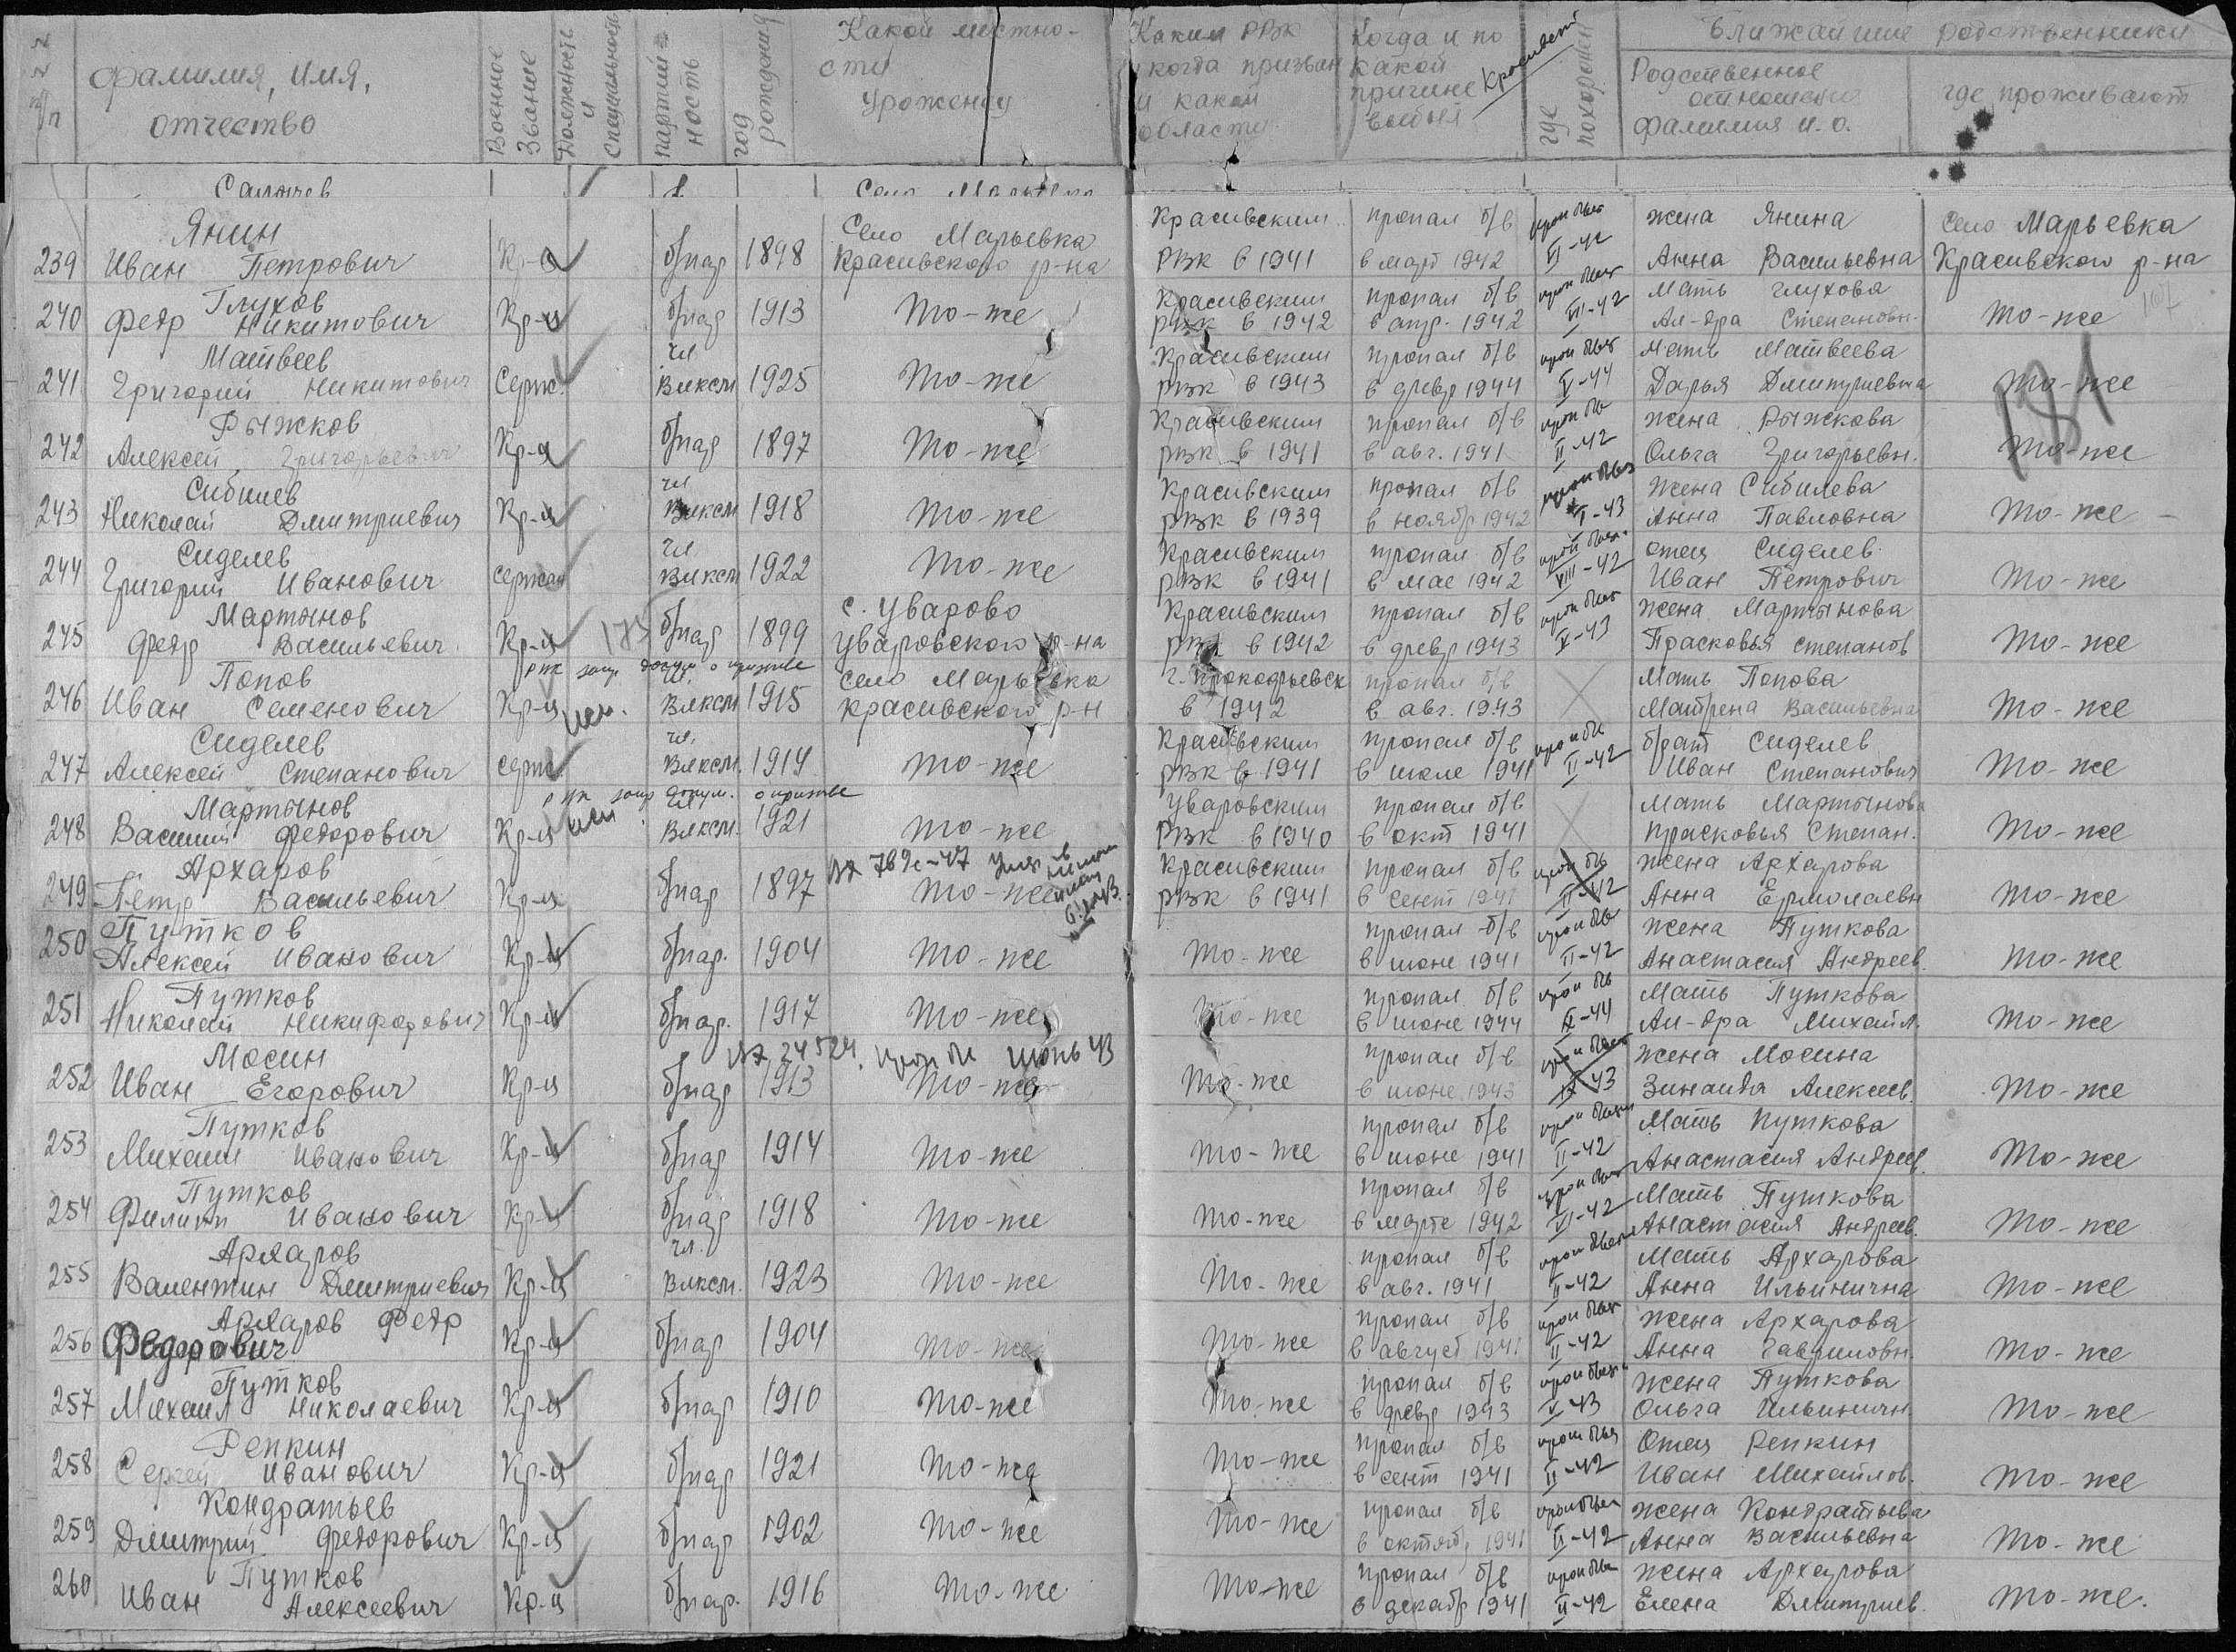 Фамилия, Имя, отчество | Военное Звание | Должность и Специальность | партийность | год рождения | Какой местности Уроженец | Каким РВК и когда призван и какой области | Когда и по какой причине выбыл | где похоронен | Ближайшие родственники
Родственное отношение фамилия и. о. | где проживают
Красивский
Салычев | Село Марьевка
Янин | Село Марьевка | Красивским | пропал б/в | жена Янина | Село Марьевка
239 Иван Петрович | Кр-ц | б/пар | 1898 | Красивского р-на | РВК в 1941 | в март 1942 | VI-42 | Анна Васильевна | Красивского р-на
Глухов | Красивским | пропал б/в | Мать Глухова
240 Федр Никитович | Кр-ц | б/пар | 1913 | то-же | рвк в 1942 | в апр. 1942 | VII-42 | Ал-дра Степановн. | то-же
Матвеев | чл | Красивским | пропал б/в | Мать Матвеева
241 Григорий Никитович | Серж. | Влксм | 1925 | то-же | рвк в 1943 | в февр 1944 | V-44 | Дарья Дмитриевна | то-же
181
Рыжков | Красивским | пропал б/в | жена Рыжкова
242 Алексей Григорьевич | Кр-ц | б/пар | 1897 | то-же | рвк в 1941 | в авг. 1941 | II-42 | Ольга Григорьевн. | то-же
Сибилев | чл | Красивским | пропал б/в | жена Сибилева
243 Николай Дмитриевич | Кр-ц | Влксм | 1918 | то-же | рвк в 1939 | в ноябр 1942 | I-43 | Анна Павловна | то-же
Сиделев | чл | Красивским | пропал б/в | отец Сиделев
244 Григорий Иванович | сержан | Влксм | 1922 | то-же | рвк в 1941 | в мае 1942 | VIII-42 | Иван Петрович | то-же
Мартынов | с. Уварово | Красивским | пропал б/в | жена Мартынова
245 Федр Васильевич | Кр-ц | 175 | б/пар | 1899 | Уваровского р-на | рвк в 1942 | в февр 1943 | V-43 | Прасковья степанов | то-же
Попов | село Марьевка | г. Прокофьевск | пропал б/в | Мать Попова
246 Иван Семенович | Кр-ц | Влксм | 1915 | красивского р-н | в 1942 | в авг. 1943 | Матрена Васильевна | то-же
Сиделев | чл. | Красивским | пропал б/в | брат Сиделев
247 Алексей Степанович | серж. | Влксм. | 1914 | то-же | рвк в 1941 | в июле 1941 | II-42 | Иван Степанович | то-же
Мартынов | чл | Уваровским | пропал б/в | Мать Мартынова
248 Василий Федорович | Кр-ц | Влксм. | 1921 | то-же | РВК в 1940 | в окт 1941 | Прасковья Степан. | то-же
Архаров | Красивским | пропал б/в | жена Архарова
249 Петр Васильевич | Кр-ц | б/пар | 1897 | то-же | рвк в 1941 | в сент 1941 | II-42 | Анна Ермолаевн | то-же
Путков | пропал б/в | жена Путкова
250 Алексей Иванович | Кр-ц | б/пар. | 1904 | то-же | то-же | в июне 1941 | II-42 | Анастасия Андреев. | то-же
Путков | пропал б/в | Мать Путкова
251 Николай Никифорович | Кр-ц | б/пар. | 1917 | то-же | то-же | в июне 1944 | IX-44 | Ал-дра Михайл. | то-же
вх 24524. июнь 43
Мосин | пропал б/в | жена Мосина
252 Иван Егорович | Кр-ц | б/пар | 1913 | то-же | то-же | в июне 1943 | IX 43 | Зинаида Алексеев. | то-же
Путков | пропал б/в | Мать Путкова
253 Михаил Иванович | Кр-ц | б/пар | 1914 | то-же | то-же | в июне 1941 | II-42 | Анастасия Андреев. | то-же
Путков | пропал б/в | Мать Путкова
254 Филипп Иванович | Кр-ц | б/пар | 1918 | то-же | то-же | в марте 1942 | VI-42 | Анастасия Андреев. | то-же
Архаров | чл. | пропал б/в | Мать Архарова
255 Валентин Дмитриевич | Кр-ц | Влксм. | 1923 | то-же | то-же | в авг. 1941 | II-42 | Анна Ильинична | то-же
Архаров Федр | пропал б/в | жена Архарова
256 Федорович | Кр-ц | б/пар | 1904 | то-же | то-же | в август 1941 | II-42 | Анна Гавриловн. | то-же
Путков | пропал б/в | жена Путкова
257 Михаил Николаевич | Кр-ц | б/пар | 1910 | то-же | то-же | в февр 1943 | V 43 | Ольга Ильиничн. | то-же
Репкин | пропал б/в | Отец Репкин
258 Сергей Иванович | Кр-ц | б/пар | 1921 | то-же | то-же | в сент 1941 | II-42 | Иван Михайлов. | то-же
Кондратьев | пропал б/в | жена Кондратьева
259 Дмитрий Федорович | Кр-ц | б/пар | 1902 | то-же | то-же | в октяб, 1941 | II-42 | Анна Васильевна | то-же
Путков | пропал б/в | жена Архарова
260 Иван Алексеевич | Кр-ц | б/пар. | 1916 | то-же | то-же | в декабр 1941 | II-42 | Елена Дмитриев. | то-же.